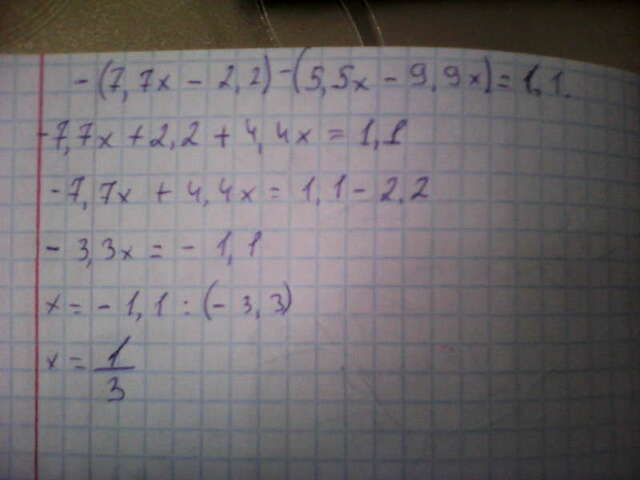 -(7,7x - 2,2) - (5,5x - 9,9x) = 1,1.
-7,7x + 2,2 + 4,4x = 1,1
-7,7x + 4,4x = 1,1 - 2,2
- 3,3x = - 1,1
x = - 1,1 : (- 3,3)
x = 1/3